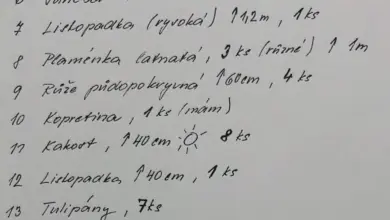 7 Listopadka (vysoká) ↑1,2m, 1 ks
8 Plaménka latnatá, 3 ks (různé) ↑ 1m
9 Růže půdopokryvná ↑60cm, 4 ks
10 Kopretina, 1 ks (mám)
11 Kakost, ↑40cm ☼ 8 ks
12 Listopadka ↑40cm, 1 ks
13 Tulipány, 7ks